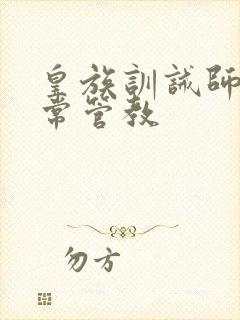 皇族訓誡師
常管教
勿方